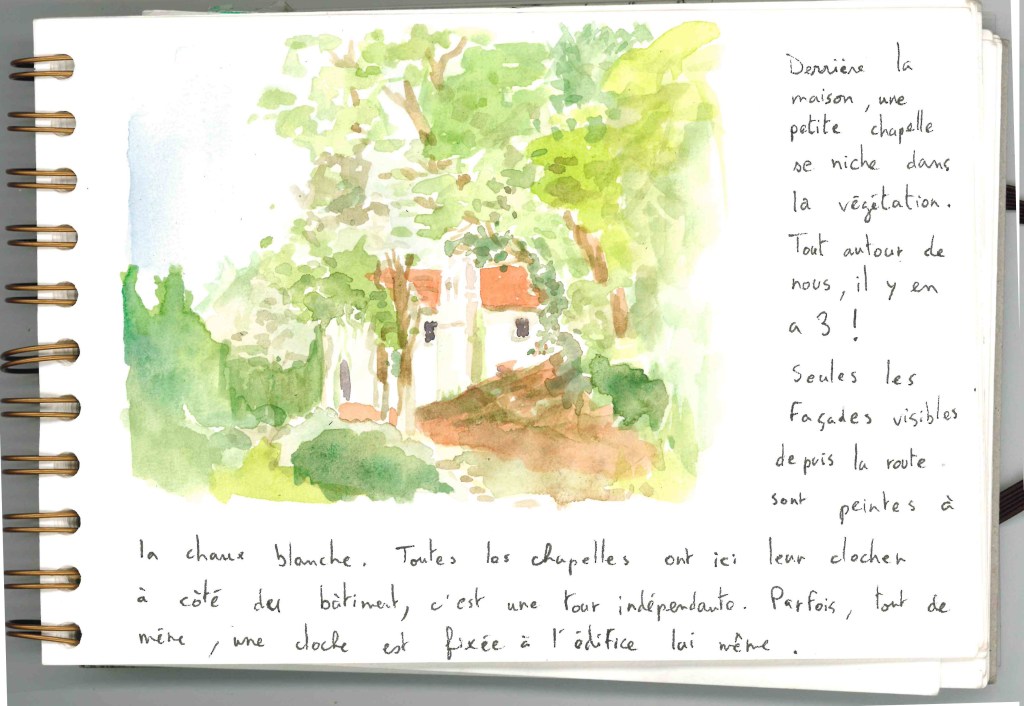 Derrière la
maison, une
petite chapelle
se niche dans
la végétation.
Tout autour de
nous, il y en
a 3 !
Seules les
façades visibles
depuis la route
sont peintes à
la chaux blanche. Toutes les chapelles ont ici leur clocher
à côté du bâtiment, c'est une tour indépendante. Parfois, tout de
même, une cloche est fixée à l'édifice lui même.